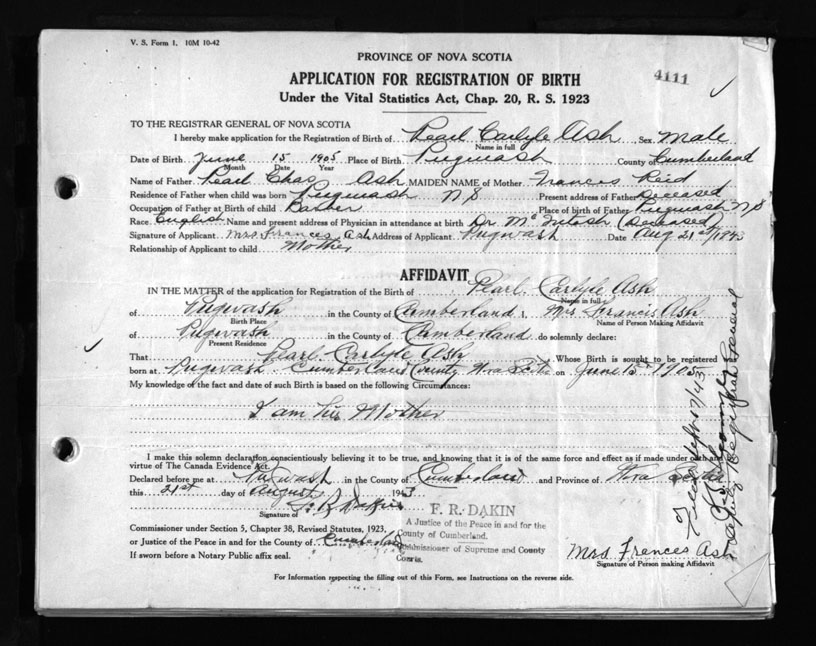 V. S. Form 1. 10M 10-42
PROVINCE OF NOVA SCOTIA
4111
APPLICATION FOR REGISTRATION OF BIRTH
Under the Vital Statistics Act, Chap. 20, R. S. 1923
TO THE REGISTRAR GENERAL OF NOVA SCOTIA
I hereby make application for the Registration of Birth of Pearl Carlyle Ash Sex Male
Name in full
Date of Birth June 15 1905 Place of Birth Pugwash County of Cumberland
Month Date Year
Name of Father Pearl Chas Ash MAIDEN NAME of Mother Frances Reid
Residence of Father when child was born Pugwash N S Present address of Father Deceased
Occupation of Father at Birth of child Barber Place of birth of Father Pugwash N S
Race English Name and present address of Physician in attendance at birth Dr. McIntosh (Deceased)
Signature of Applicant Mrs Frances Ash Address of Applicant Pugwash Date Aug 21st/1943
Relationship of Applicant to child Mother
AFFIDAVIT
IN THE MATTER of the application for Registration of the Birth of Pearl Carlyle Ash
Name in full
of Pugwash in the County of Cumberland I, Mrs. Francis Ash
Birth Place Name of Person Making Affidavit
of Pugwash in the County of Cumberland do solemnly declare:
Present Residence
That Pearl Carlyle Ash Whose Birth is sought to be registered
born at Pugwash Cumberland County Nova Scotia on June 15th 1905
My knowledge of the fact and date of such Birth is based on the following Circumstances:
I am his Mother
I make this solemn declaration conscientiously believing it to be true, and knowing that it is of the same force and effect as if made under oath and
virtue of The Canada Evidence Act.
Declared before me at Pugwash in the County of Cumberland and Province of Nova Scotia
this 21st day of August 1943
Signature of F. R. Dakin
F. R. DAKIN
A Justice of the Peace in and for the
County of Cumberland.
Commissioner of Supreme and County
Courts.
Commissioner under Section 5, Chapter 38, Revised Statutes, 1923,
or Justice of Peace in and for the County of Cumberland
If sworn before a Notary Public affix seal.
Mrs Frances Ash
Signature of Person making Affidavit
For Information respecting the filling out of this Form, see Instructions on the reverse side.
Deputy Registrar General